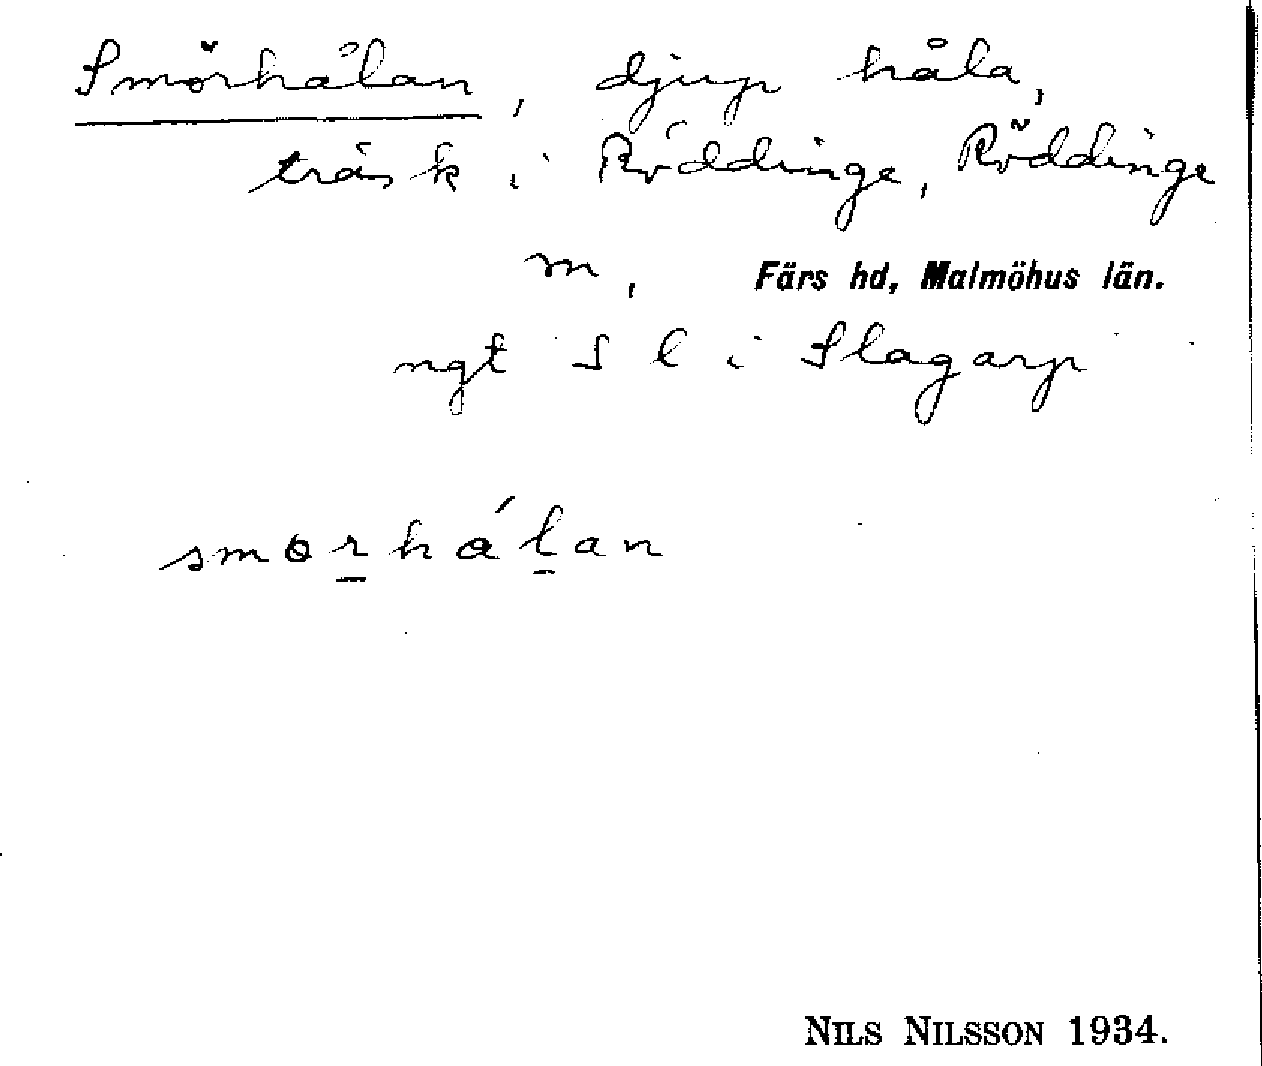 Smörhålan, djup håla,
träsk i Röddinge, Röddinge
m, Färs hd, Malmöhus län.
ngt S l i Slagarp
smɵrhálan
NILS NILSSON 1934.